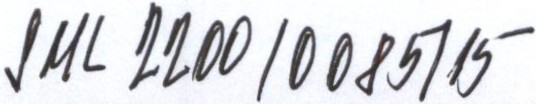 SML 2200/0085/15